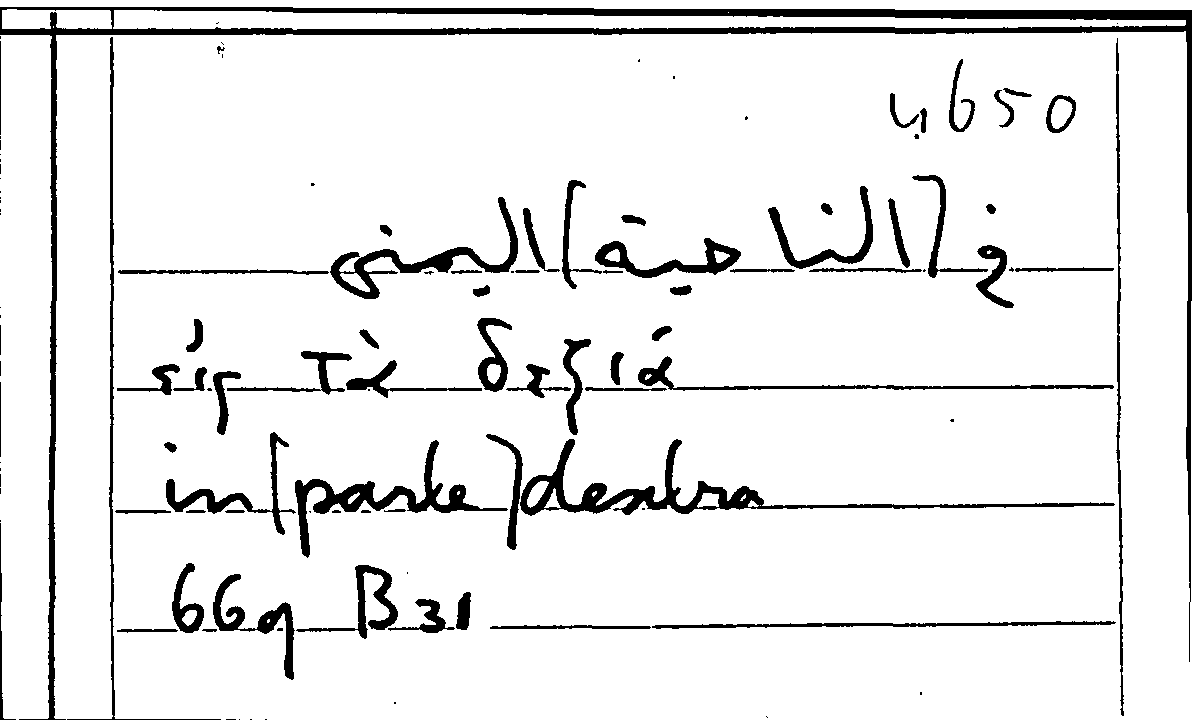 4650
في [الناحية] اليمنى
εἰς τὰ δεξιά
in [parte] dextra
669 B31